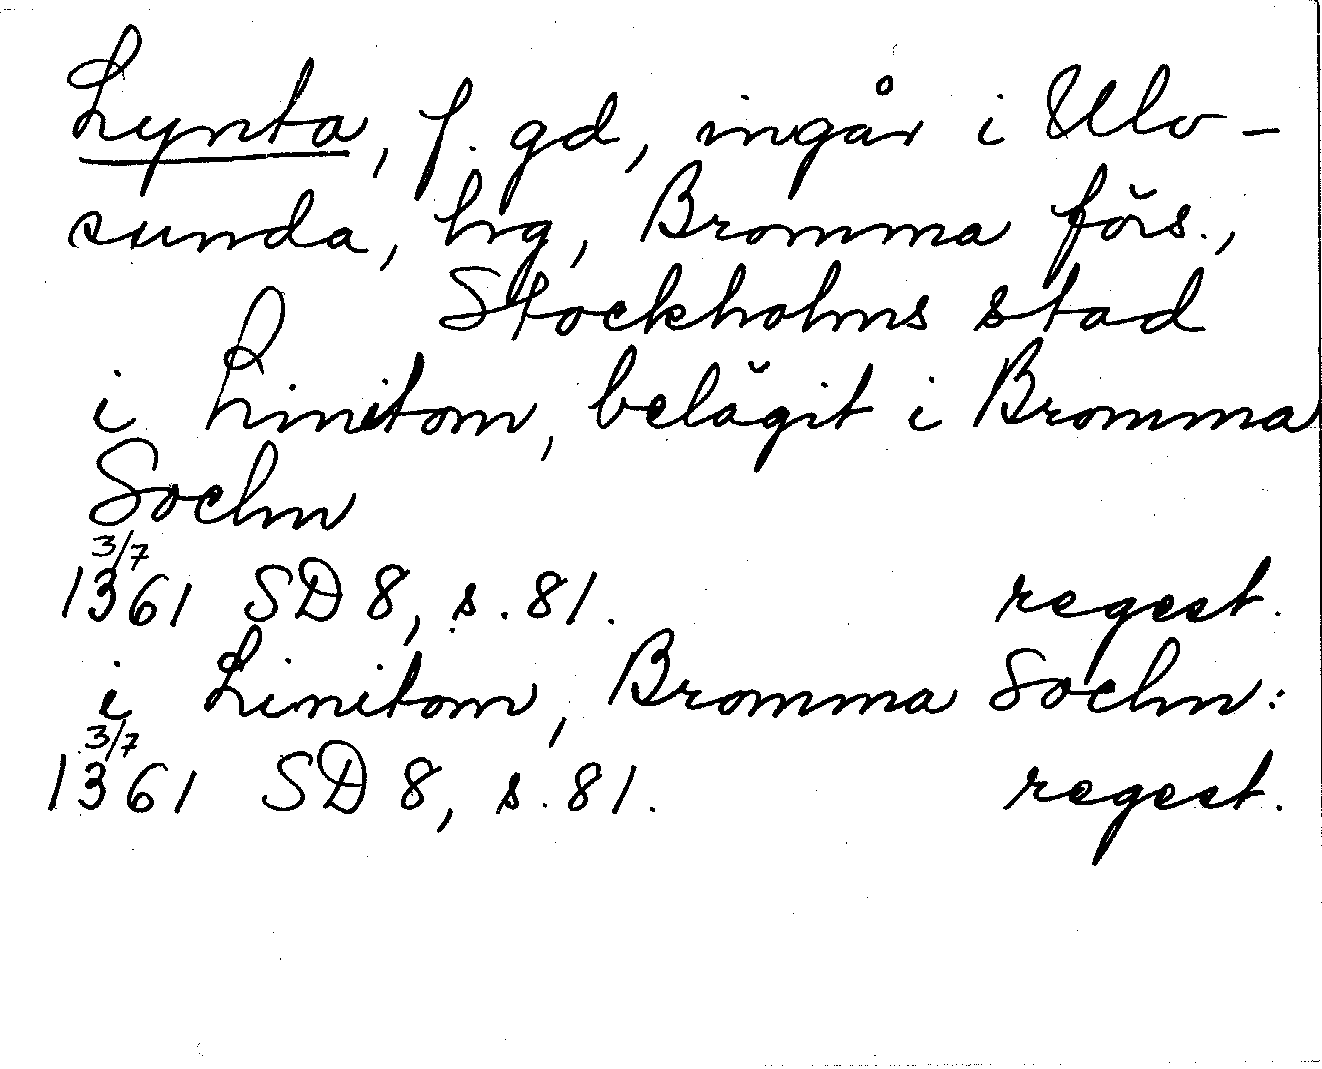 Lynta, f. gd, ingår i Ulv-
sunda, hrg, Bromma förs.,
Stockholms stad
i Linitom, belägit i Bromma
Sochn
3/7
1361 SD 8, s. 81. regest.
i Linitom, Bromma Sochn:
3/7
1361 SD 8, s. 81. regest.